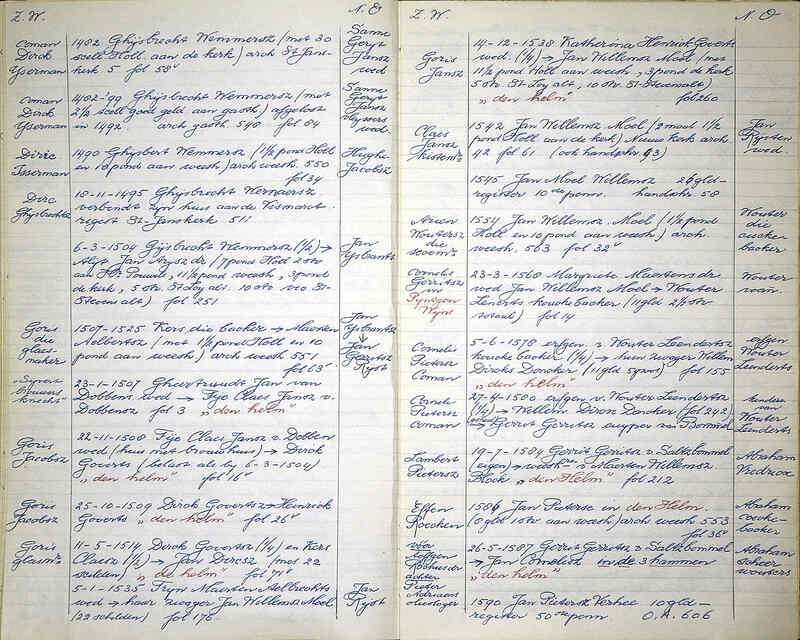 Z.W.
N.O
Coman
Dirck
Ysserman
1482 Ghijsbrecht Wemmersz (met 30
scell Holl. aan de kerk) arch St Jans-
kerk 5 fol 58v
Sanne
Geryt
Jansz
wed
Coman
Dirck
Ysserman
1482-'99 Ghijsbrecht Wemmersz (met
2 1/2 scell goed geld aan gasth) afgelost
in 1492. arch gasth. 548 fol 84
Sanne
Geryt
Jansz
wed.
Diric
Ysserman
1490 Ghijsbert Wemmersz (1 1/2 pond Holl
en 10 pond aan weesh) arch weesh. 550
fol 34
Hughe
Jacobsz
Dirc
Ghijsbrechtsz
10-11-1495 Ghijsbrecht Wernaersz
verbondt zijn huis aan de Vismarct.
regest St-Janskerk 511
6-3-1504 Gijsbrecht Wemmersz (1/2) →
Alijt Jan Arysz dr (7 pond Holl 2 otr
aan 11 1/2 pond weesh, 3 pond
de kerk, 5 otr. St Loy alt. 10 otr
Stevens alt) fol 251
Jan
Ysbrantsz
Goris
die
glaes-
maker
1507-1525 Kors die backer → Maerten
Aelbertsz (met 1 1/2 pond Holl en 10
pond aan weesh) arch weesh 551
fol 63v
Jan
Ysbrantsz
↓
Jan
Gerritsz
Ryst
"Syvert
brouwers
knecht"
23-1-1507 Gheertruudt Jan van
Dobbens wed → Fije Claes Jansz v.
Dobbensz fol 3 "den helm"
Goris
Jacobsz
22-11-1508 Fije Claes Jansz v. Dobben
wed (huis met brouwhuis) → Dirck
Goverts (belast als bij 6-3-1504)
"den helm" fol 16v
Goris
Jacobsz
25-10-1509 Dirck Govertsz → Heinrick
Goverts "den helm" fol 26v
Goris
glasm's
11-5-1514 Dirck Govertsz (1/4) en Kers
Claesz (1/2) → Jan Dircsz (met 22
schilden) "de helm" fol 71v
5-1-1535 Tryn Maerten Aelbrechts
wed → haar zwager Jan Willemsz Moel
(22 schilden) fol 176
Jan
Ryst
Z.W.
N.O
Goris
Jansz
14-12-1538 Katherina Henrick Goverts
wed. (1/4) → Jan Willemsz Moel (met
11 1/2 pond Holl aan weesh, 3 pond de kerk
5 otr. St Loy alt, 10 otr. St-Stevensalt)
"den helm" fol 260
Claes
Jansz
1542 Jan Willemsz Moel (2 maal 1 1/2
pond Holl aan de kerk) Nieuwe kerk arch
42 fol 61 (ook handschr. 63)
Jan
Rysten
wed.
1545 Jan Moel Willemsz 26 gld-
register 10de penn. handschr 58
Arien
Woutersz
die
1554 Jan Willemsz. Moel (1 1/2 pond
Holl en 10 pond aan weesh) arch
weesh. 563 fol 32v
Wouter
die
backer
Cornelis
Gerritsz
in
Pijntgen
Wijns
23-3-1568 Margriete Maertens dr.
wed Jan Willemsz Moel → Wouter
Lenerts backer (11 gld 2 1/2 otr
fol 14
Wouter
Cornelis
Pietersz
Coman
5-6-1578 erfgen. v. Wouter Leendertsz
backer (1/4) → hun zwager Willem
Dircks Doncker (11 gld 5 gro) fol 155
"den helm"
erfgen
Wouter
Leenderts
Cornelis
Pietersz
coman
27-4-1580 erfgen v. Wouter Leendertsz
(1/4) → Willem Dircx Doncker (fol 242)
→ Gerrit Gerritsz cuyper van Bommel
kinderen
van
Wouter
Leenderts
Lambert
Pietersz
19-7-1584 Gerrit Gerritsz v. Saltzbommel
(eigen) → weesk v. Maerten Willemsz.
Block "den Helm" fol 212
Abraham
Effen
Roecken
1586 Jan Pietersz in den Helm.
(8 gld 10 otr aan weesh) arch weesh 553
fol 38v
Abraham
backer
Pieter
Adriaens
26-5-1587 Gerrit Gerritsz v. Saltzbommel
→ Jan Cornelisz in de 3 hammen
"den helm"
Abraham
wouters
1590 Jan Pietersz Verhee 10 gld-
register 50ste penn O.A. 606